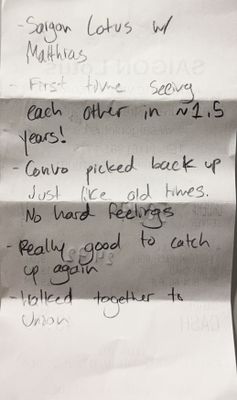 - Saigon Lotus w/
Matthias
- First time seeing
each other in ~1.5
years!
- Convo picked back up
just like old times.
No hard feelings
- Really good to catch
up again
- Walked together to
Union